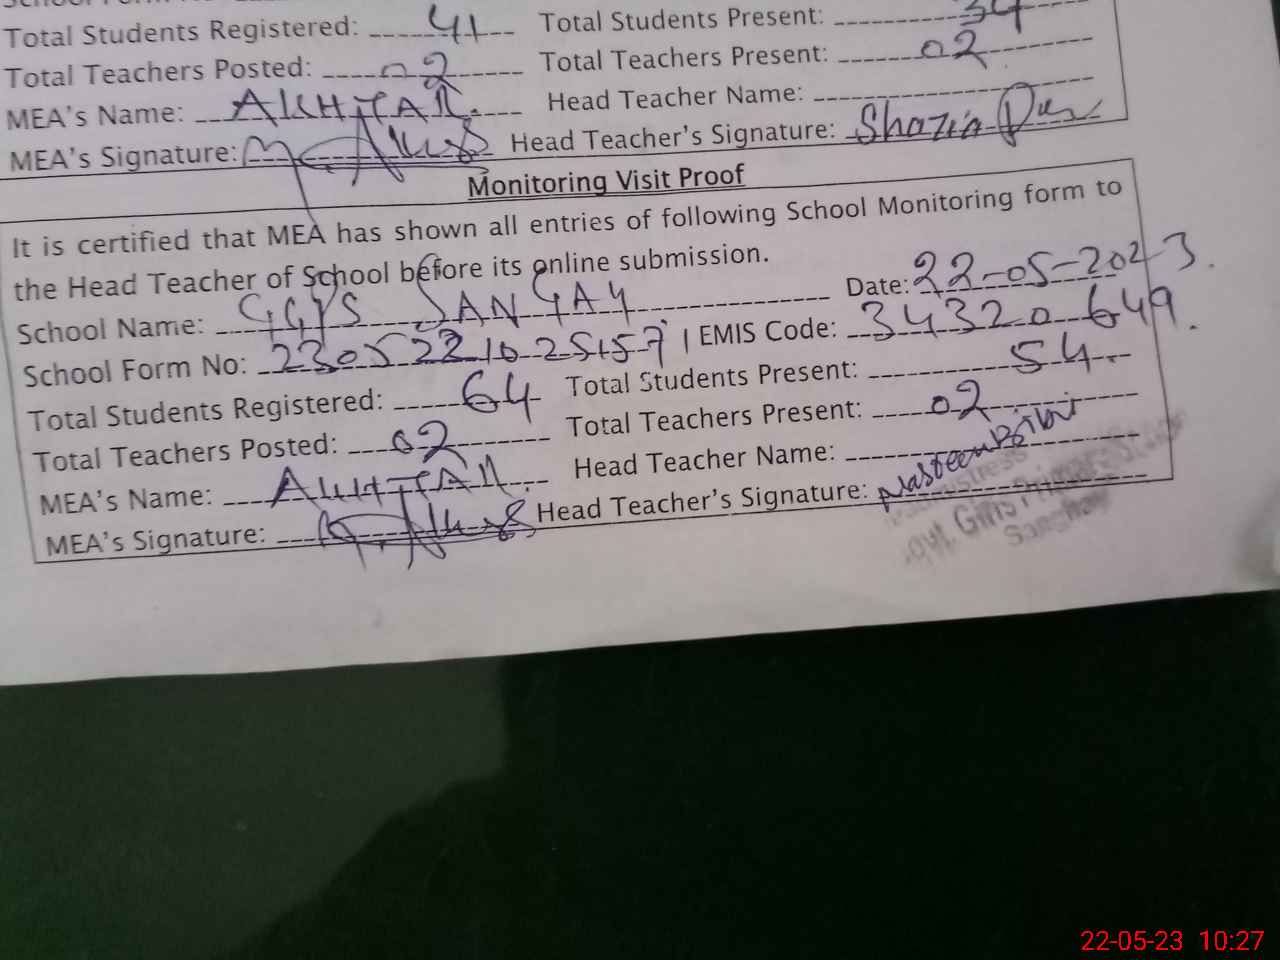 Total Students Registered: 41 Total Students Present: 34
Total Teachers Posted: 02 Total Teachers Present: 02
MEA's Name: AKHTAR. Head Teacher Name:
MEA's Signature: Head Teacher's Signature: Shazia
Monitoring Visit Proof
It is certified that MEA has shown all entries of following School Monitoring form to
the Head Teacher of School before its online submission.
School Name: GGPS SANGAY Date: 22-05-2023.
School Form No: 2305221025157 | EMIS Code: 34320649.
Total Students Registered: 64 Total Students Present: 54
Total Teachers Posted: 02 Total Teachers Present: 02
MEA's Name: AKHTAR. Head Teacher Name:
MEA's Signature: Head Teacher's Signature: Nasteen Bibi
Govt. Girls Primary
22-05-23 10:27